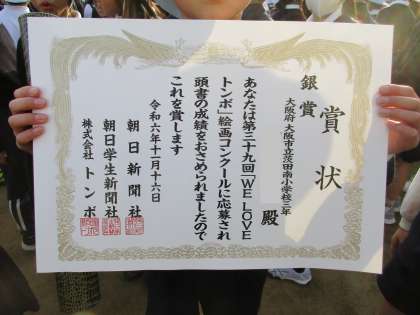 賞状
銀賞
大阪府 大阪市立茨田南小学校二年
殿
あなたは第三十九回「WE LOVE
トンボ」絵画コンクールに応募され
頭書の成績をおさめられましたので
これを賞します
令和六年十一月十六日
朝日新聞社
朝日学生新聞社
株式会社 トンボ